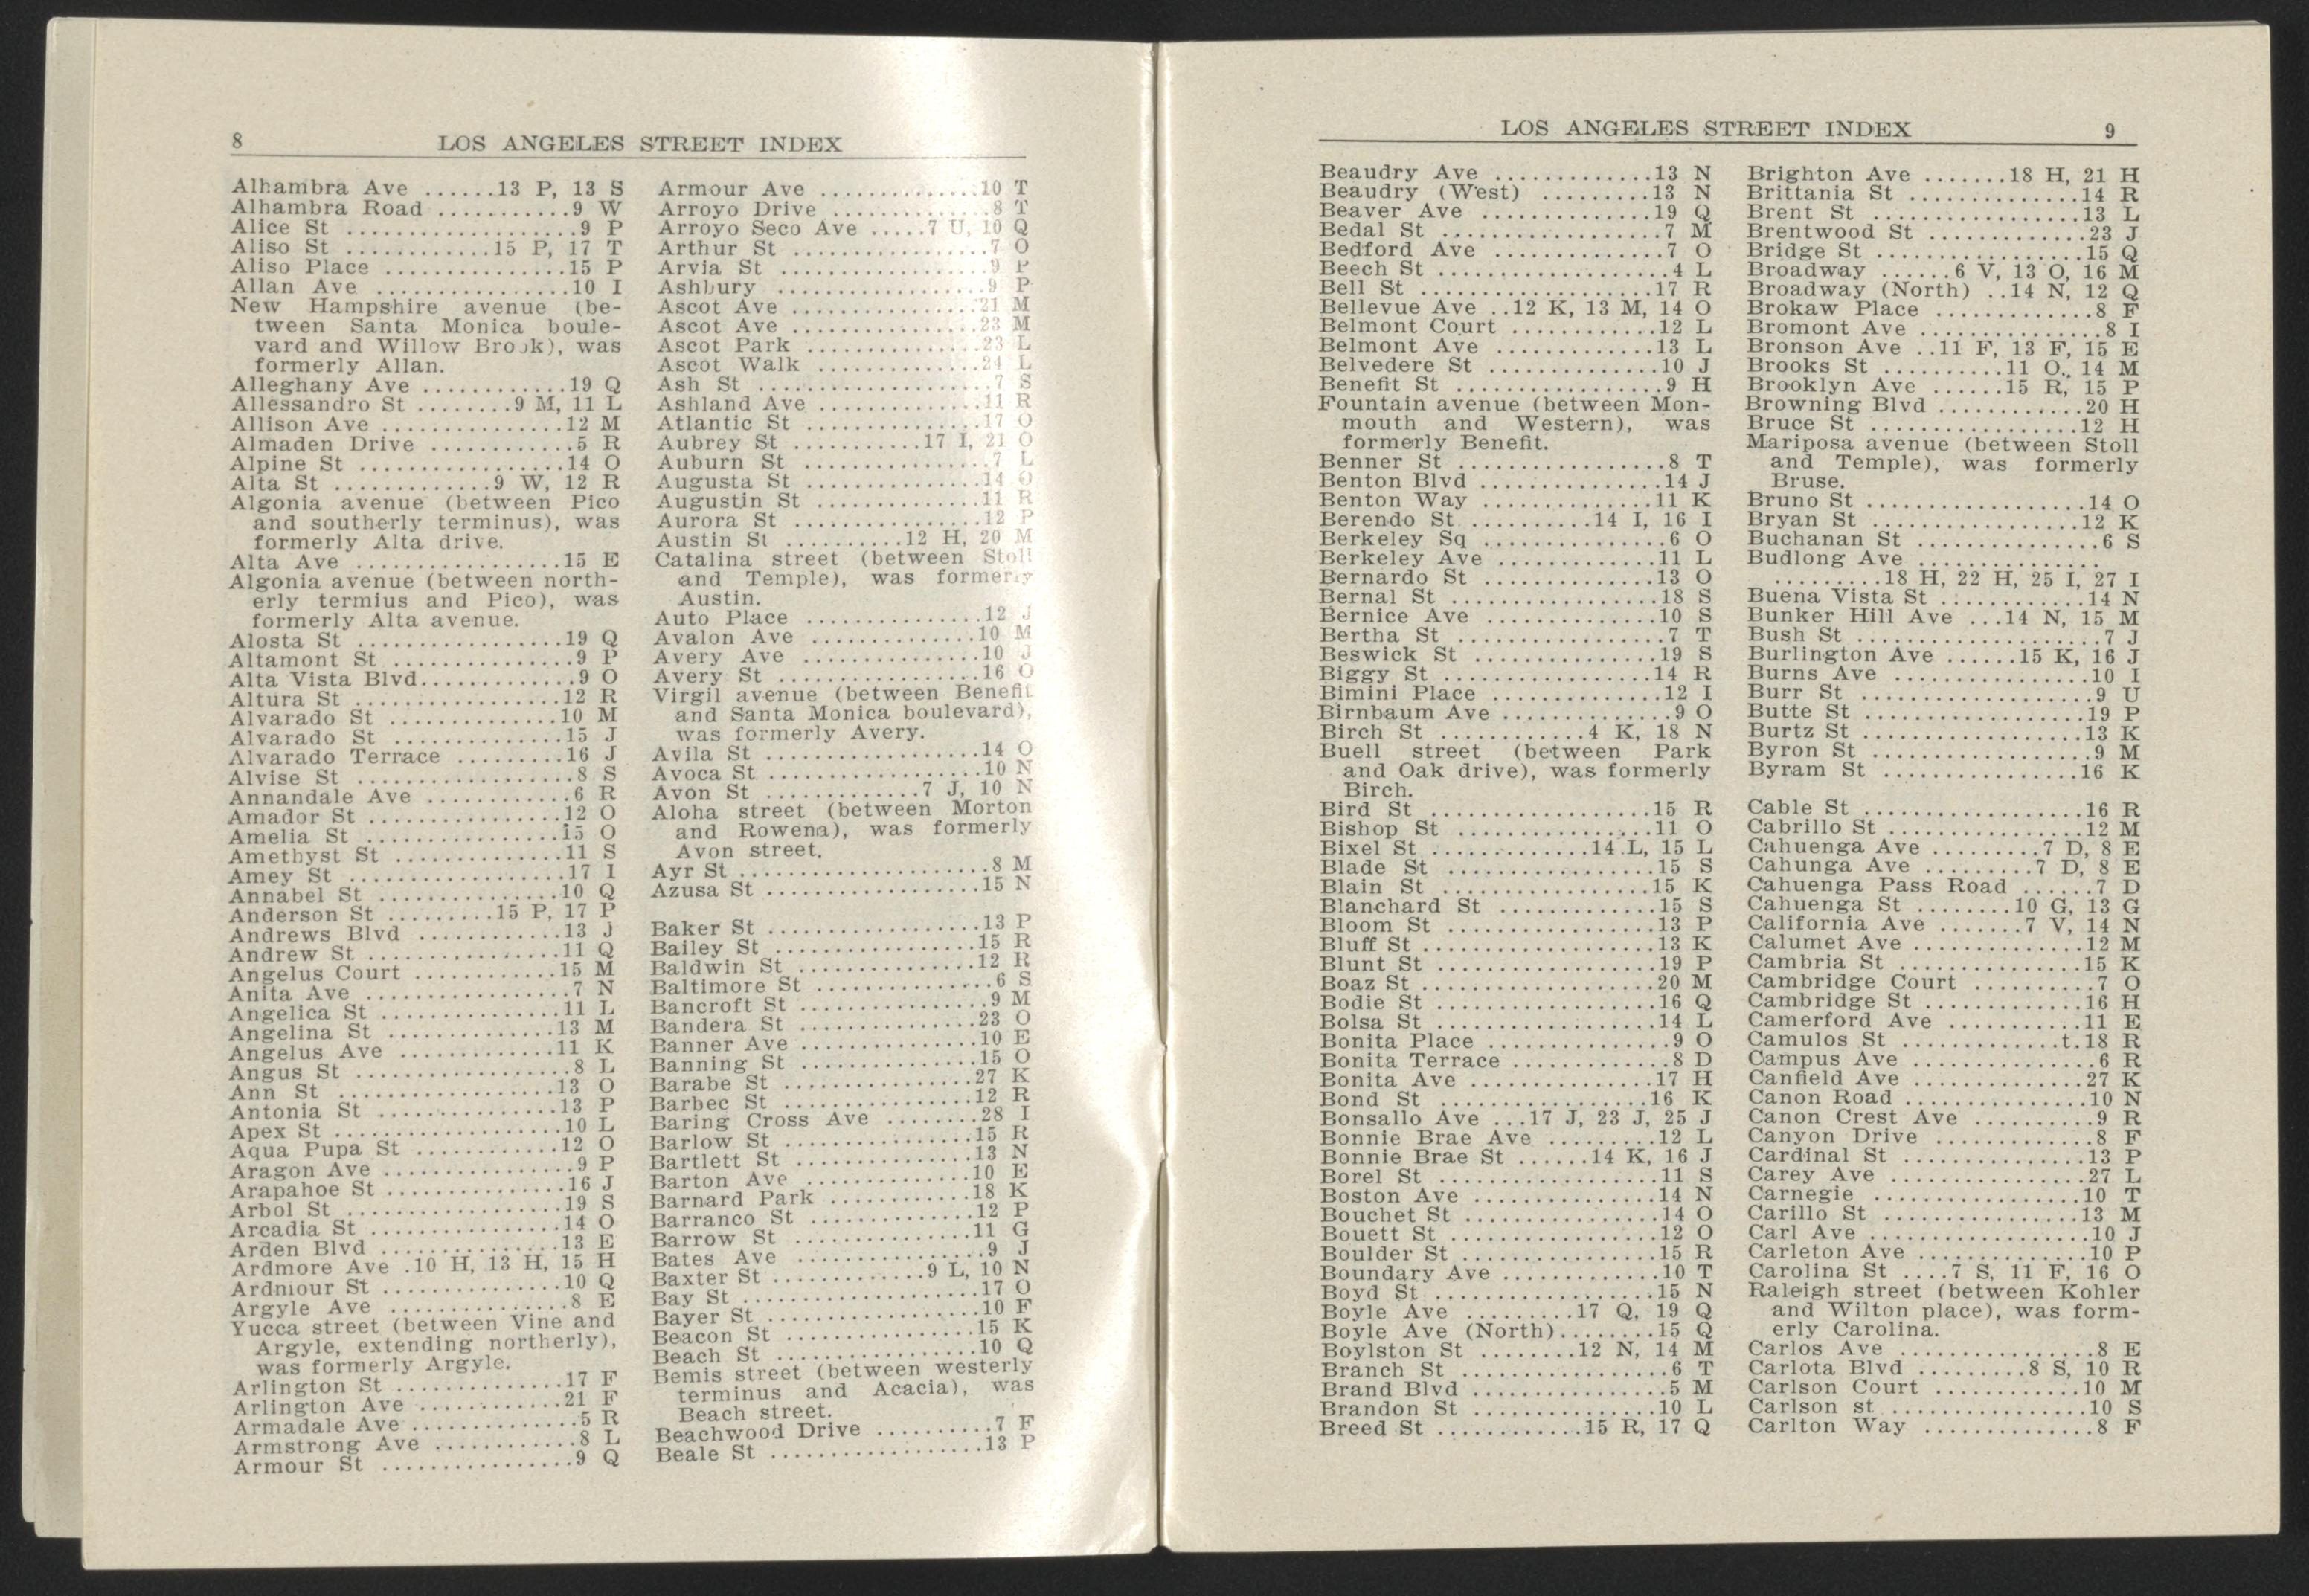 8 LOS ANGELES STREET INDEX
Alhambra Ave ......13 P, 13 S
Alhambra Road ...........9 W
Alice St ...................9 P
Aliso St ............15 P, 17 T
Aliso Place ...............15 P
Allan Ave ................10 I
New Hampshire avenue (be-
tween Santa Monica boule-
vard and Willow Brook), was
formerly Allan.
Alleghany Ave ............19 Q
Allessandro St ........9 M, 11 L
Allison Ave ...............12 M
Almaden Drive ............5 R
Alpine St .................14 O
Alta St .............9 W, 12 R
Algonia avenue (between Pico
and southerly terminus), was
formerly Alta drive.
Alta Ave .................15 E
Algonia avenue (between north-
erly termius and Pico), was
formerly Alta avenue.
Alosta St .................19 Q
Altamont St ...............9 P
Alta Vista Blvd.............9 O
Altura St .................12 R
Alvarado St ..............10 M
Alvarado St ..............15 J
Alvarado Terrace .........16 J
Alvise St ..................8 S
Annandale Ave ............6 R
Amador St ................12 O
Amelia St ................15 O
Amethyst St ..............11 S
Amey St ..................17 I
Annabel St ...............10 Q
Anderson St .........15 P, 17 P
Andrews Blvd ............13 J
Andrew St ................11 Q
Angelus Court ............15 M
Anita Ave .................7 N
Angelica St ...............11 L
Angelina St ..............13 M
Angelus Ave .............11 K
Angus St ..................8 L
Ann St ..................13 O
Antonia St ...............13 P
Apex St ...................10 L
Aqua Pupa St ............12 O
Aragon Ave ................9 P
Arapahoe St ...............16 J
Arbol St ..................19 S
Arcadia St ................14 O
Arden Blvd ...............13 E
Ardmore Ave .10 H, 13 H, 15 H
Ardmour St ...............10 Q
Argyle Ave ...............8 E
Yucca street (between Vine and
Argyle, extending northerly),
was formerly Argyle.
Arlington St ..............17 F
Arlington Ave ............21 F
Armadale Ave ..............5 R
Armstrong Ave ............8 L
Armour St ................9 Q
Armour Ave ..............10 T
Arroyo Drive ..............8 T
Arroyo Seco Ave .....7 U, 10 Q
Arthur St .................7 O
Arvia St ..................9 P
Ashbury ..................9 P
Ascot Ave ................21 M
Ascot Ave ................23 M
Ascot Park ...............23 L
Ascot Walk ..............24 L
Ash St ....................7 S
Ashland Ave ..............11 R
Atlantic St ...............17 O
Aubrey St ............17 I, 21 O
Auburn St .................7 L
Augusta St ...............14 O
Augustin St ..............11 R
Aurora St ................12 P
Austin St ..........12 H, 20 M
Catalina street (between Stoll
and Temple), was formerly
Austin.
Auto Place ...............12 J
Avalon Ave ..............10 M
Avery Ave ...............10 J
Avery St ..................16 O
Virgil avenue (between Benefit
and Santa Monica boulevard),
was formerly Avery.
Avila St ..................14 O
Avoca St ..................10 N
Avon St .............7 J, 10 N
Aloha street (between Morton
and Rowena), was formerly
Avon street.
Ayr St .....................8 M
Azusa St ..................15 N
Baker St ..................13 P
Bailey St .................15 R
Baldwin St ...............12 R
Baltimore St ...............6 S
Bancroft St ................9 M
Bandera St ...............23 O
Banner Ave ...............10 E
Banning St ...............15 O
Barabe St ................27 K
Barbec St ................12 R
Baring Cross Ave ........28 I
Barlow St ................15 R
Bartlett St ...............13 N
Barton Ave ..............10 E
Barnard Park ............18 K
Barranco St ..............12 P
Barrow St ...............11 G
Bates Ave ................9 J
Baxter St .............9 L, 10 N
Bay St ....................17 O
Bayer St ..................10 F
Beacon St ................15 K
Beach St .................10 Q
Bemis street (between westerly
terminus and Acacia), was
Beach street.
Beachwood Drive ..........7 F
Beale St ..................13 P
LOS ANGELES STREET INDEX 9
Beaudry Ave .............13 N
Beaudry (West) .........13 N
Beaver Ave ..............19 Q
Bedal St ..................7 M
Bedford Ave ..............7 O
Beech St ...................4 L
Bell St ...................17 R
Bellevue Ave ..12 K, 13 M, 14 O
Belmont Court ............12 L
Belmont Ave .............13 L
Belvedere St .............10 J
Benefit St .................9 H
Fountain avenue (between Mon-
mouth and Western), was
formerly Benefit.
Benner St .................8 T
Benton Blvd ...............14 J
Benton Way ..............11 K
Berendo St ..........14 I, 16 I
Berkeley Sq ...............6 O
Berkeley Ave .............11 L
Bernardo St ..............13 O
Bernal St .................18 S
Bernice Ave ..............10 S
Bertha St .................7 T
Beswick St ...............19 S
Biggy St .................14 R
Bimini Place .............12 I
Birnbaum Ave .............9 O
Birch St ............4 K, 18 N
Buell street (between Park
and Oak drive), was formerly
Birch.
Bird St ..................15 R
Bishop St ................11 O
Bixel St .............14 L, 15 L
Blade St .................15 S
Blain St .................15 K
Blanchard St .............15 S
Bloom St .................13 P
Bluff St ...................13 K
Blunt St ..................19 P
Boaz St ...................20 M
Bodie St ..................16 Q
Bolsa St ..................14 L
Bonita Place ..............9 O
Bonita Terrace ............8 D
Bonita Ave ...............17 H
Bond St ..................16 K
Bonsallo Ave ...17 J, 23 J, 25 J
Bonnie Brae Ave .........12 L
Bonnie Brae St ......14 K, 16 J
Borel St .................11 S
Boston Ave ...............14 N
Bouchet St ................14 O
Bouett St .................12 O
Boulder St ................15 R
Boundary Ave .............10 T
Boyd St ..................15 N
Boyle Ave .........17 Q, 19 Q
Boyle Ave (North)........15 Q
Boylston St ........12 N, 14 M
Branch St .................6 T
Brand Blvd ................5 M
Brandon St ...............10 L
Breed St ............15 R, 17 Q
Brighton Ave .......18 H, 21 H
Brittania St ..............14 R
Brent St .................13 L
Brentwood St .............23 J
Bridge St .................15 Q
Broadway ......6 V, 13 O, 16 M
Broadway (North) ..14 N, 12 Q
Brokaw Place .............8 F
Bromont Ave ...............8 I
Bronson Ave ..11 F, 13 F, 15 E
Brooks St ..........11 O., 14 M
Brooklyn Ave ......15 R, 15 P
Browning Blvd ............20 H
Bruce St .................12 H
Mariposa avenue (between Stoll
and Temple), was formerly
Bruse.
Bruno St ..................14 O
Bryan St .................12 K
Buchanan St ...............6 S
Budlong Ave ...............
.........18 H, 22 H, 25 I, 27 I
Buena Vista St ............14 N
Bunker Hill Ave ...14 N, 15 M
Bush St ....................7 J
Burlington Ave ......15 K, 16 J
Burns Ave ................10 I
Burr St ...................9 U
Butte St ..................19 P
Burtz St ..................13 K
Byron St ..................9 M
Byram St ................16 K
Cable St ..................16 R
Cabrillo St ................12 M
Cahuenga Ave .........7 D, 8 E
Cahunga Ave .........7 D, 8 E
Cahuenga Pass Road ......7 D
Cahuenga St ........10 G, 13 G
California Ave .......7 V, 14 N
Calumet Ave ..............12 M
Cambria St ...............15 K
Cambridge Court ..........7 O
Cambridge St .............16 H
Camerford Ave ...........11 E
Camulos St .............t.18 R
Campus Ave ...............6 R
Canfield Ave ..............27 K
Canon Road ...............10 N
Canon Crest Ave ..........9 R
Canyon Drive .............8 F
Cardinal St ...............13 P
Carey Ave ................27 L
Carnegie .................10 T
Carillo St ................13 M
Carl Ave ..................10 J
Carleton Ave ..............10 P
Carolina St ....7 S, 11 F, 16 O
Raleigh street (between Kohler
and Wilton place), was form-
erly Carolina.
Carlos Ave ................8 E
Carlota Blvd .........8 S, 10 R
Carlson Court ............10 M
Carlson st ................10 S
Carlton Way ..............8 F